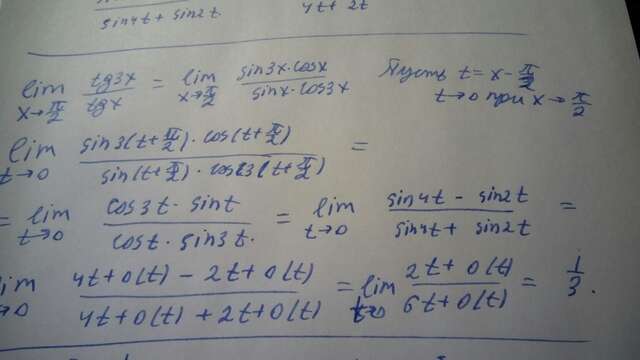 sin4t + sin2t 4t + 2t
lim x→π/2 tg3x/tgx = lim x→π/2 sin3x·cosx / sinx·cos3x Пусть t = x - π/2
t→0 при x→π/2
lim t→0 sin3(t+π/2)·cos(t+π/2) / sin(t+π/2)·cos(3(t+π/2)) =
= lim t→0 cos3t·sint / cost·sin3t. = lim t→0 sin4t - sin2t / sin4t + sin2t =
lim t→0 4t+o(t) - 2t+o(t) / 4t+o(t)+2t+o(t) = lim t→0 2t+o(t) / 6t+o(t) = 1/3.